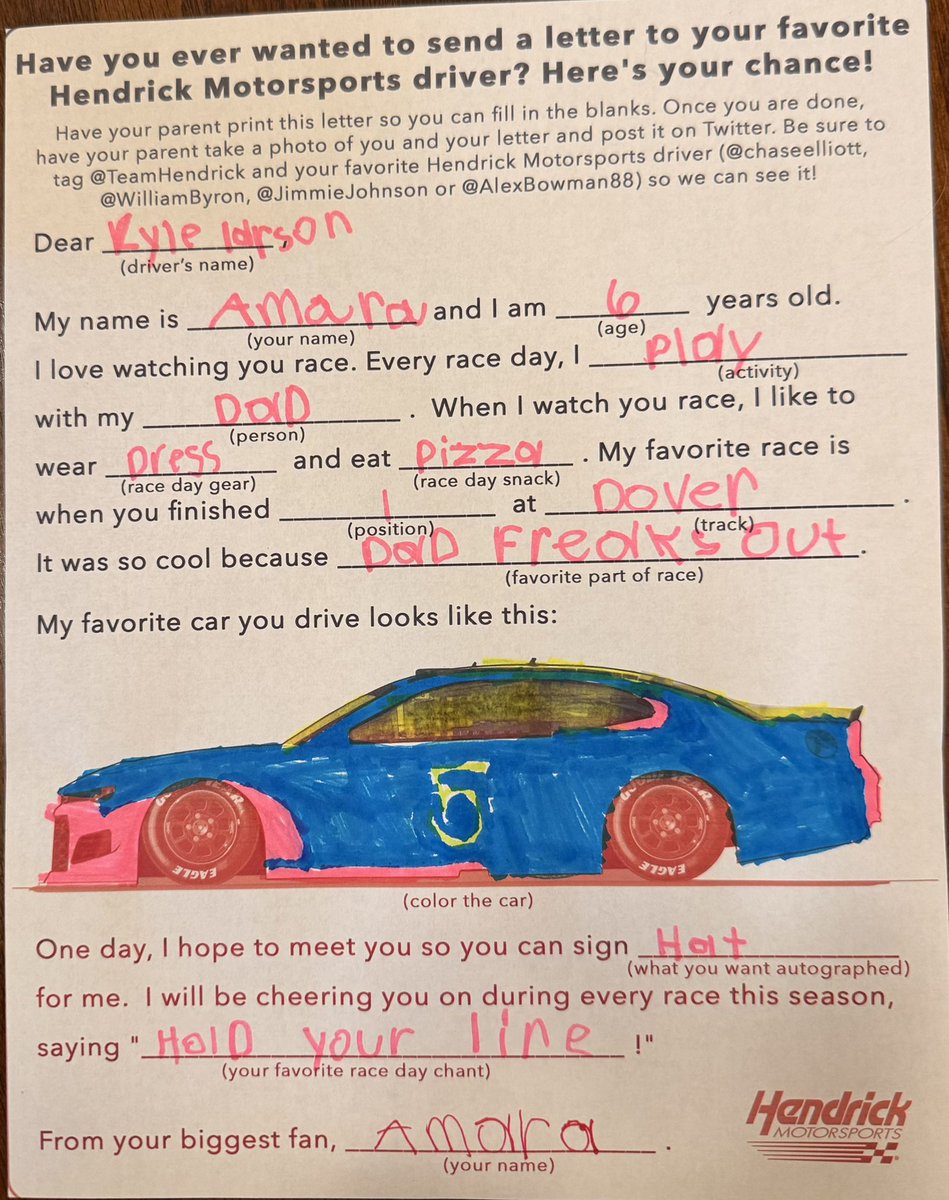 Have you ever wanted to send a letter to your favorite
Hendrick Motorsports driver? Here's your chance!
Have your parent print this letter so you can fill in the blanks. Once you are done,
have your parent take a photo of you and your letter and post it on Twitter. Be sure to
tag @TeamHendrick and your favorite Hendrick Motorsports driver (@chaseelliott,
@WilliamByron, @JimmieJohnson or @AlexBowman88) so we can see it!
Dear Kyle larson,
(driver's name)
My name is Amara and I am 6 years old.
(your name) (age)
I love watching you race. Every race day, I Play
(activity)
with my DaD. When I watch you race, I like to
(person)
wear Dress and eat Pizza. My favorite race is
(race day gear) (race day snack)
when you finished 1 at Dover.
(position) (track)
It was so cool because DaD Freaks Out.
(favorite part of race)
My favorite car you drive looks like this:
5
GOODYEAR
EAGLE
GOODYEAR
EAGLE
(color the car)
One day, I hope to meet you so you can sign Hat
(what you want autographed)
for me. I will be cheering you on during every race this season,
saying "HolD your line!"
(your favorite race day chant)
From your biggest fan, Amara.
(your name)
Hendrick
MOTORSPORTS